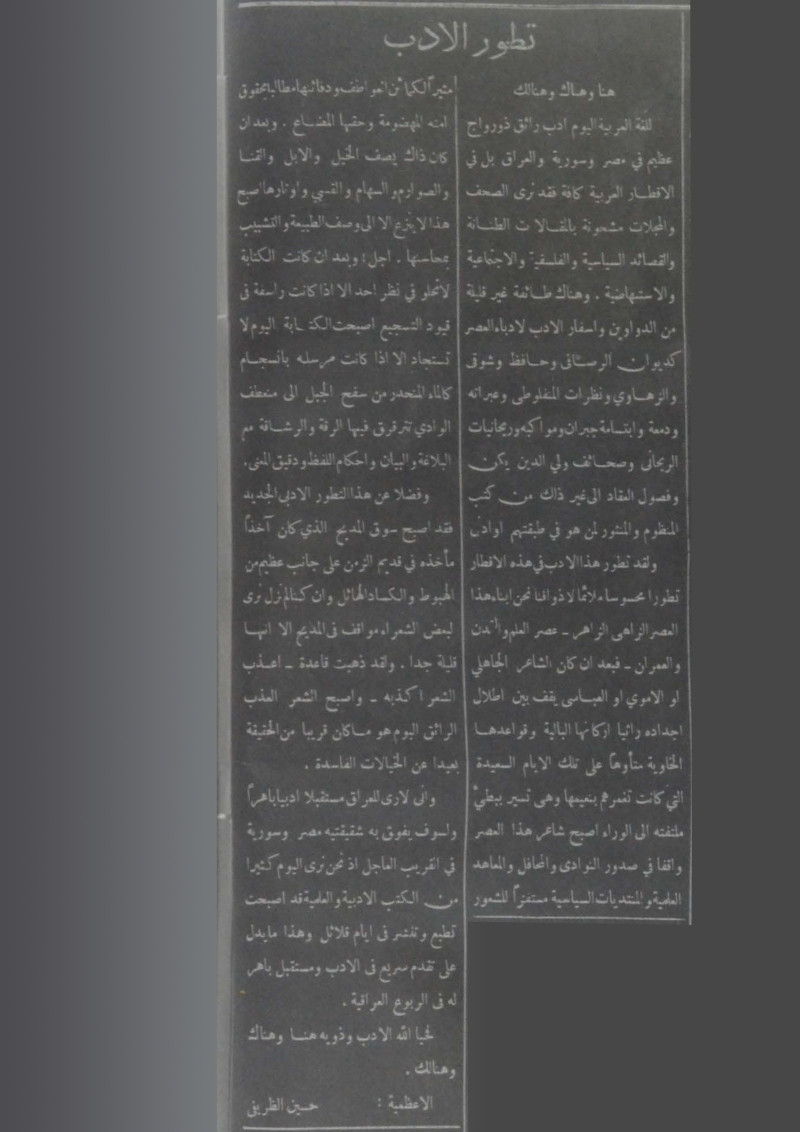 تطور الادب
هنا وهناك وهنالك
للغة العربية اليوم ادب رائق ذو رواج
عظيم في مصر وسورية والعراق بل في
الاقطار العربية كافة فقد نرى الصحف
والمجلات مشحونة بالمقالات الطنانة
والقصائد السياسية والفلسفية والاجتماعية
والاستنهاضية . وهناك طائفة غير قليلة
من الدواوين واسفار الادب لادباء العصر
كديوان الرصافى وحافظ وشوقى
والزهاوي ونظرات المنفلوطى وعبراته
ودمعة وابتسامة جبران ومواكبه وريحانيات
الريحانى وصحائف ولي الدين يكن
وفصول العقاد الى غير ذلك من كتب
المنظوم والمنثور لمن هو في طبقتهم او ادنى
ولقد تطور هذا الادب في هذه الاقطار
تطورا محسوسا ملائما لاذواقنا نحن ابناء هذا
العصر الزاهى الزاهر ــ عصر العلم والتمدن
والعمران ــ فبعد ان كان الشاعر الجاهلي
او الاموي او العباسى يقف بين اطلال
اجداده راثيا اركانها البالية وقواعدها
الخاوية متأوها على تلك الايام السعيدة
التي كانت تغمرهم بنعيمها وهى تسير ببطئ
ملتفته الى الوراء اصبح شاعر هذا العصر
واقفا في صدور النوادى والمحافل والمعاهد
العلمية والمنتديات السياسية مستفزاً للشعور
مثيراً لكمائن العواطف ودفائنها مطالبا بحقوق
امته المهضومة وحقها المضاع . وبعد ان
كان ذاك يصف الخيل والابل والقنا
والصوارم والسهام والقسي واوتارها اصبح
هذا لا ينزع الا الى وصف الطبيعة والتشبيب
بمحاسنها . اجل ! وبعد ان كانت الكتابة
لا تحلو في نظر احد الا اذا كانت راسفة فى
قيود التسجيع اصبحت الكتابة اليوم لا
تستجاد الا اذا كانت مرسله بانسجام
كالماء المنحدر من سفح الجبل الى منعطف
الوادي تترقرق فيها الرقة والرشاقة مع
البلاغة والبيان واحكام اللفظ ودقيق المعنى.
وفضلا عن هذا التطور الادبى الجديد
فقد اصبح سوق المديح الذي كان آخذاً
مأخذه في قديم الزمن على جانب عظيم من
الهبوط والكساد الهائل وان كنا لم نزل نرى
لبعض الشعراء مواقف فى المديح الا انها
قليلة جدا . ولقد ذهبت قاعدة ــ اعذب
الشعر اكذبه ــ واصبح الشعر العذب
الرائق اليوم هو ماكان قريبا من الحقيقة
بعيدا عن الخيالات الفاسدة .
وانى لارى للعراق مستقبلا ادبيا باهراً
ولسوف يفوق به شقيقتيه مصر وسورية
في القريب العاجل اذ نحن نرى اليوم كثيرا
من الكتب الادبية والعلمية قد اصبحت
تطبع وتنشر فى ايام قلائل وهذا ما يدل
على تقدم سريع فى الادب ومستقبل باهر
له فى الربوع العراقية .
فحيا الله الادب وذويه هنا وهناك
وهنالك .
الاعظمية : حسين الظريفى